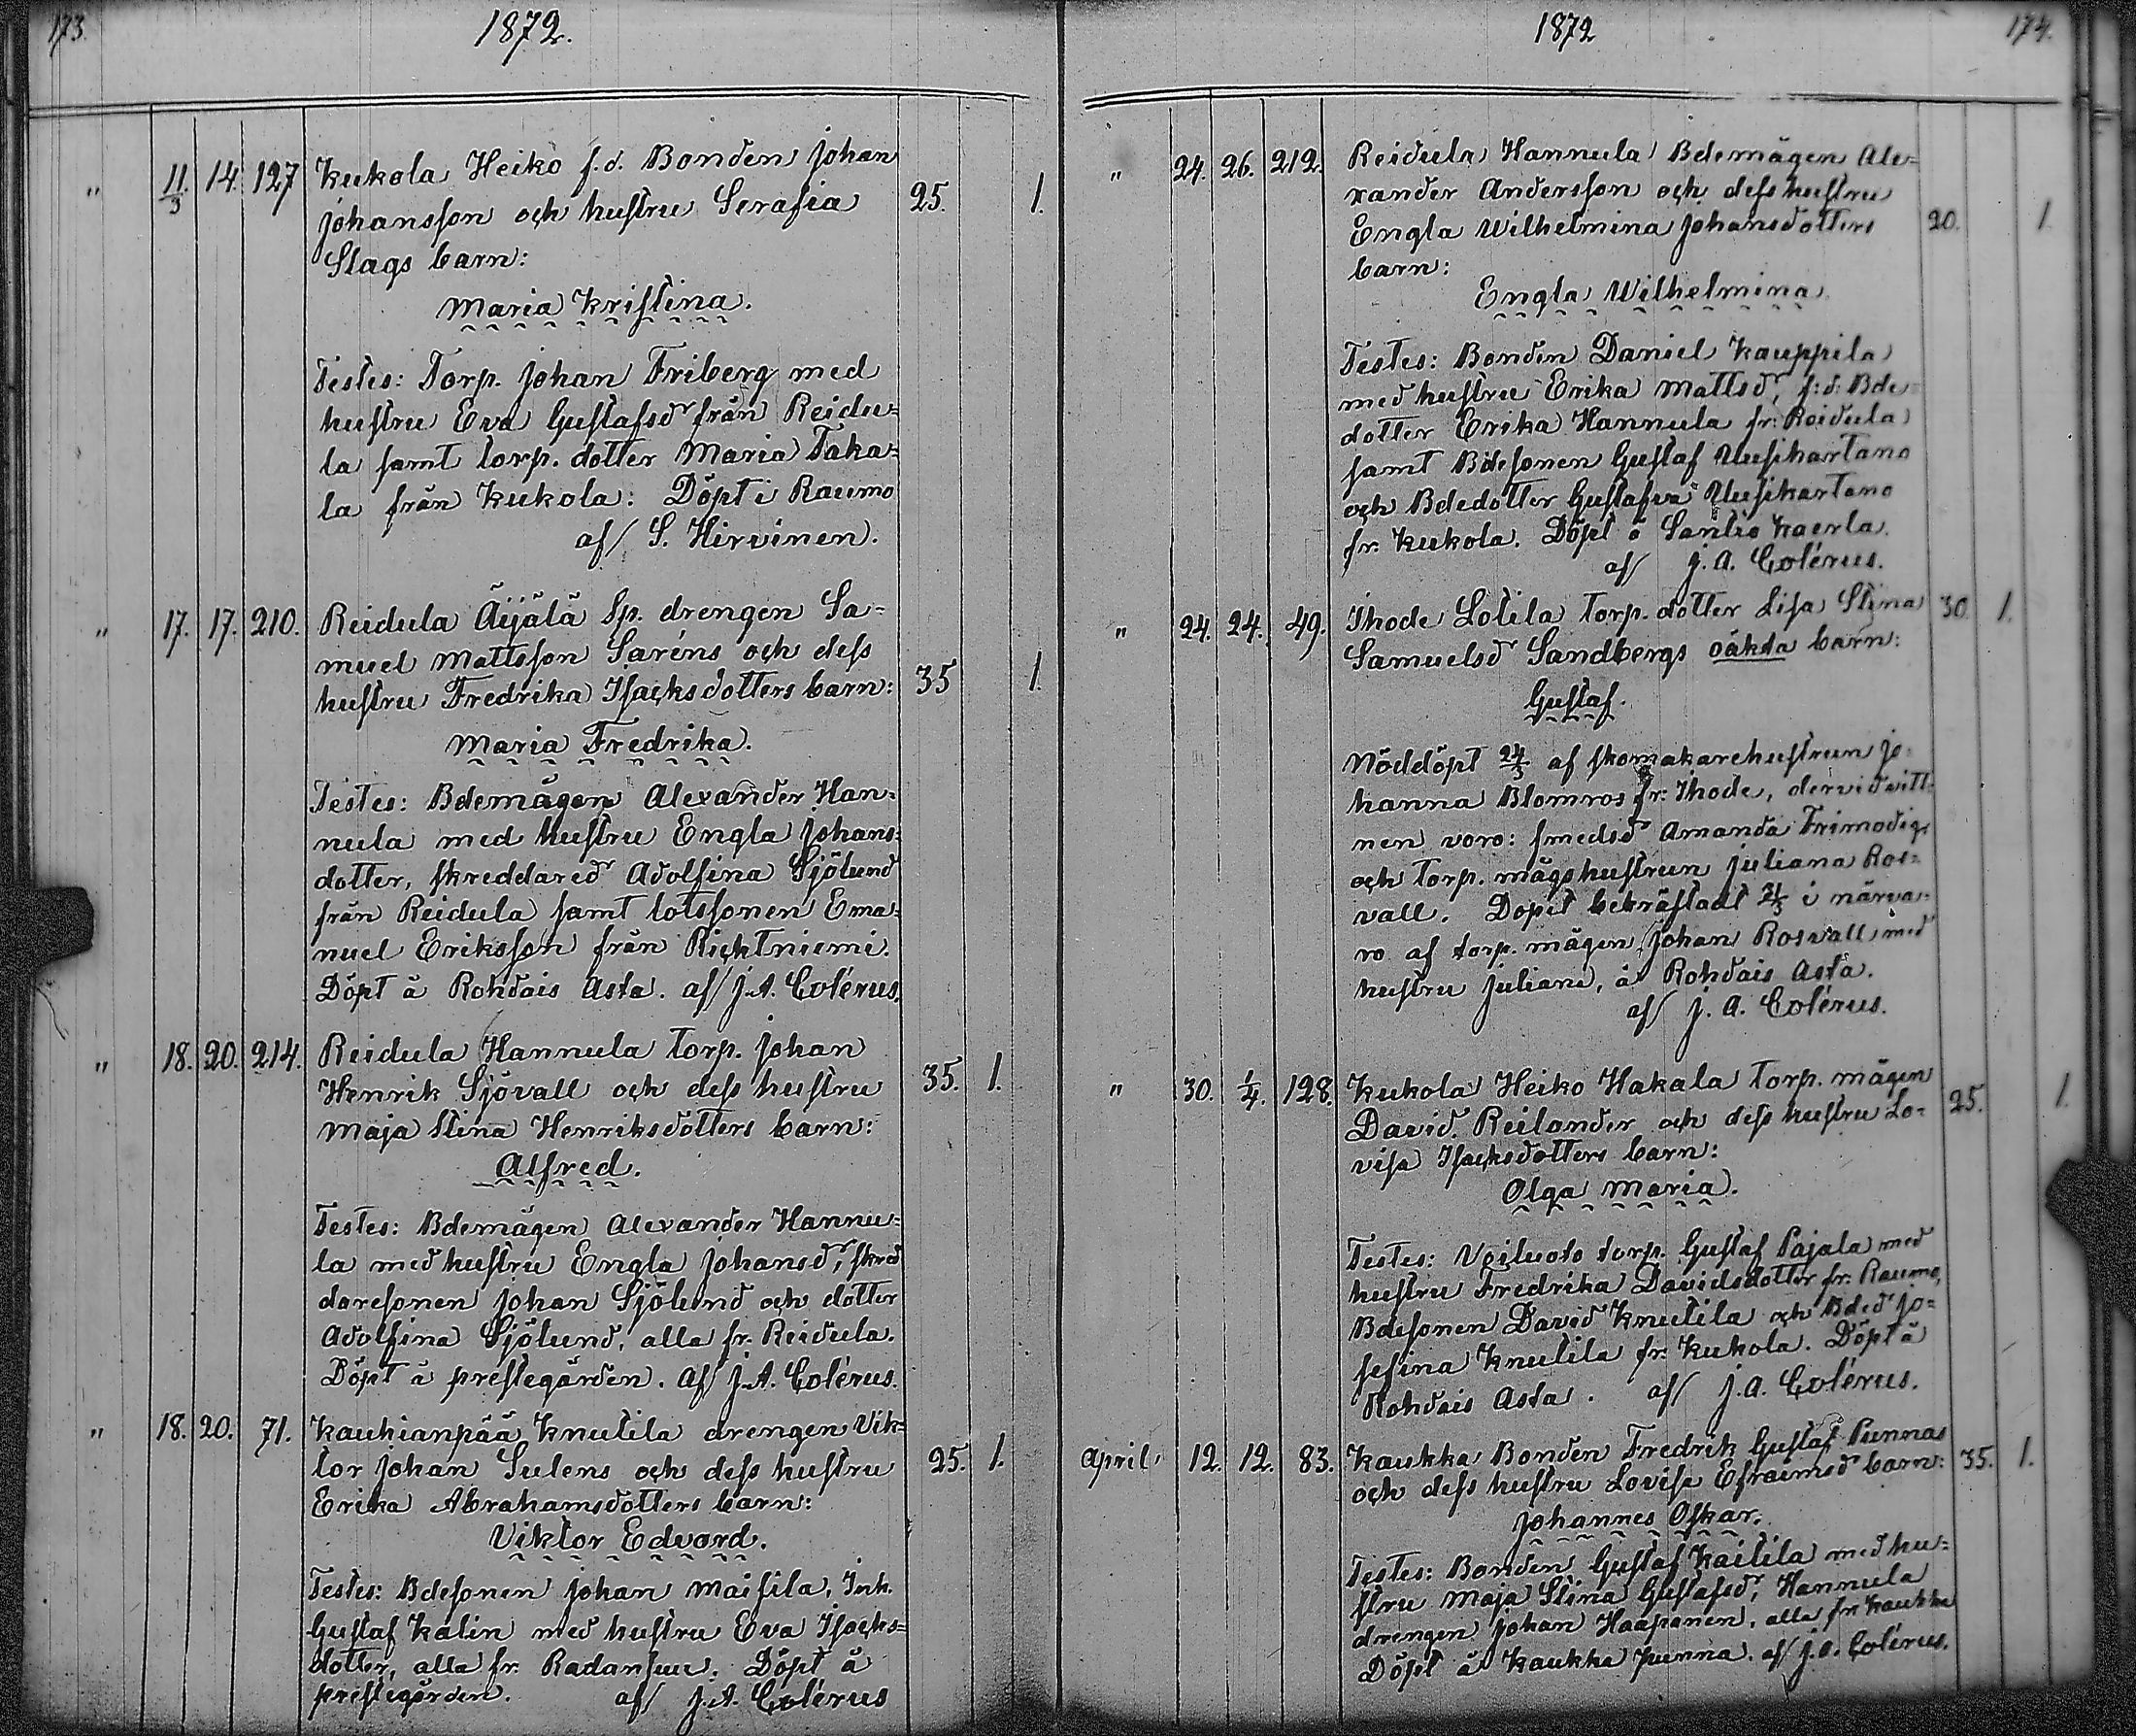 173.
1872.
" 11/3 14. 127 Kukola Heiko f.d. Bonden Johan
Johansson och hustru Serafia 25. 1.
Slags barn:
Maria Kristina.
Testes: Torp. Johan Friberg med
hustru Eva Gustafsdr från Reidu=
la samt torp. dotter Maria Taka=
la från Kukola: Döpt i Raumo
af/ S. Hirvinen.
" 17. 17. 210. Reidula Äijälä Sp. drengen Sa=
muel Mattsson Saréns och dess
hustru Fredrika Isacksdotters barn: 35 1.
Maria Fredrika.
Testes: Bdemågen Alexander Han=
nula med hustru Engla Johans=
dotter, skreddaredr Adolfina Sjölund
från Reidula samt lotssonen Ema=
nuel Eriksson från Richtniemi.
Döpt å Rohdais Asta. af/ J.A. Colérus.
" 18. 20. 214. Reidula Hannula torp. Johan
Henrik Sjövall och dess hustru 35. 1.
Maja Stina Henriksdotters barn:
Alfred.
Testes: Bdemågen Alexander Hannu=
la med hustru Engla Johansdr, skred
daresonen Johan Sjölund och dotter
Adolfina Sjölund, alla fr. Reidula.
Döpt å prestegården. af/ J.A. Colérus.
" 18. 20. 71. Kauhianpää Knutila drengen Vik=
tor Johan Sulens och dess hustru 25. 1.
Erika Abrahamsdotters barn:
Viktor Edvard.
Testes: Bdesonen Johan Maisila, Inh.
Gustaf Kalin med hustru Eva Isacks=
dotter, alla fr. Radansuu. Döpt å
prestegården. af/ J.A. Colérus
1872
174.
" 24. 26. 212. Reidula Hannula Bdemågen Ale=
xander Andersson och dess hustru
Engla Wilhelmina Johansdotters 20. 1.
barn:
Engla Wilhelmina
Testes: Bonden Daniel Kauppila
med hustru Erika Mattsdr, f:d: Bde=
dotter Erika Hannula fr: Reidula
samt Bdesonen Gustaf Uusikartano
och Bdedotter Gustafva Uusikartano
fr. Kukola. Döpt å Santio Kaerla.
af/ J.A. Colérus.
" 24. 24. 49. Ihode Lotila torp. dotter Lisa Stina 30. 1.
Samuelsdr Sandbergs oäkta barn:
Gustaf.
Nöddöpt 24/3 af skomakarehustrun Jo=
hanna Blomros fr: Ihode, dervid vitt=
nen voro: smedsdr Amanda Frimodig
och torp. mågshustrun Juliana Ros=
vall. Dopet bekräftadt 24/3 i närva=
ro af torp. mågen Johan Rosvall med
hustru Juliana, å Rohdais Asta.
af/ J.A. Colérus.
" 30. 1/4. 128. Kukola Heiko Hakala torp. mågen
David Reilander och dess hustru Lo= 25. 1.
visa Isacksdotters barn:
Olga Maria.
Testes: Voiluoto torp. Gustaf Pajala med
hustru Fredrika Davidsdotter fr: Raumo,
Bdesonen David Knutila och Bdedr Jo=
sefina Knutila fr. Kukola. Döpt å
Rohdais Asta. af/ J.A. Colérus.
April, 12. 12. 83. Kaukka Bonden Fredrik Gustaf Punnas
och dess hustru Lovisa Efraimsdr barn: 35. 1.
Johannes Oskar.
Testes: Bonden Gustaf Kaitila med hu=
stru Maja Stina Gustafsdr, Hannula
drengen Johan Haapanen, alla fr Kaukka
Döpt å Kaukka Punna. af/ J.A. Colérus.